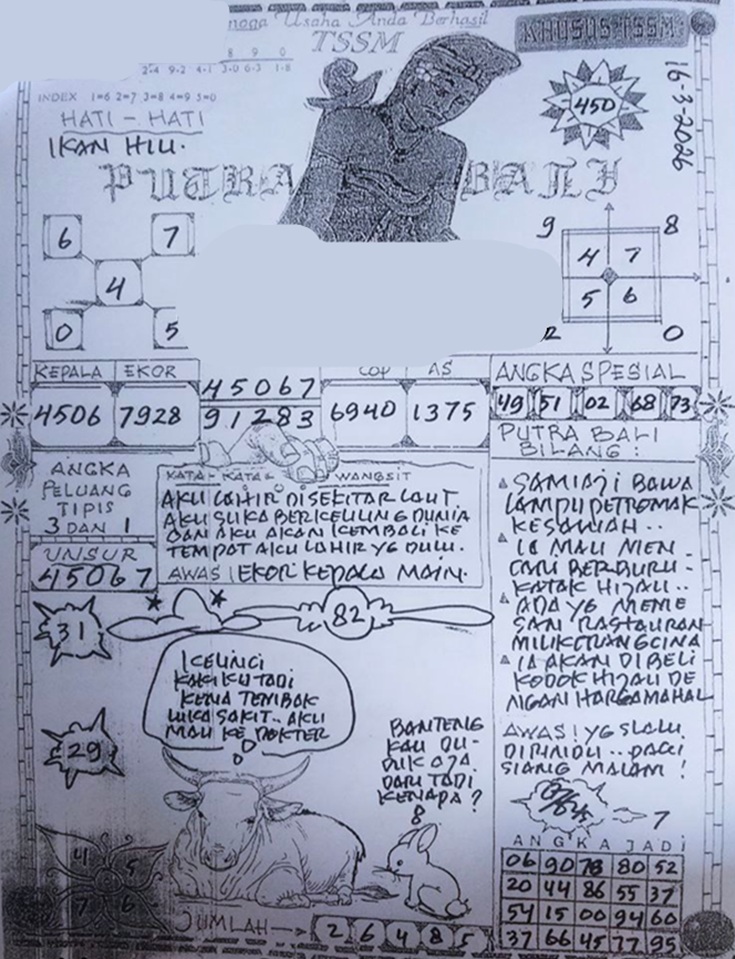 Usaha Anda Berhasil
TSSM
KHUSUS TSSM
8 9 0
2-4 9-2 4-1 3-0 6-3 1-8
INDEX 1=6 2=7 3=8 4=9 5=0
HATI - HATI
IKAN HIU.
450
16-3-2026
PUTRA BALI
6 7
4
0 5
9 8
4 7
5 6
2 0
KEPALA EKOR
4506 7928
45067
91283
COP AS
6940 1375
ANGKA SPESIAL
49 51 02 68 73
PUTRA BALI
BILANG:
ANGKA
PELUANG
TIPIS
3 DAN 1
UNSUR
45067
KATA - KATA = WANGSIT
AKU LAHIR DISEKITAR LAUT
AKU SUKA BERKELILING DUNIA
DAN AKU AKAN KEMBALI KE
TEMPAT AKU LAHIR YG DULU.
AWAS! EKOR KEPALA MAIN.
SAMIAJI BAWA
LAMPU PETROMAK
KESAWAH..
IA MAU MEN-
CARI BERBURU-
KATAK HIJAU..
ADA YG MEME
SAN RASTAURAN
MILIK ORANG CINA
IA AKAN DIBELI
KODOK HIJAU DE
NGAN HARGA MAHAL
AWAS! YG SLALU
DIRINDU.. PAGI
SIANG MALAM!
31
82
29
KELINCI
KAKIKU TADI
KENA TEMBAK
LUKA SAKIT.. AKU
MAU KE DOKTER
BANTENG
KAU DU-
DUK AJA
DARI TADI
KENAPA?
7
4 5
7 6
ANGKA JADI
06 90 78 80 52
20 44 86 55 37
54 15 00 94 60
37 66 45 77 95
JUMLAH
2 6 4 8 5